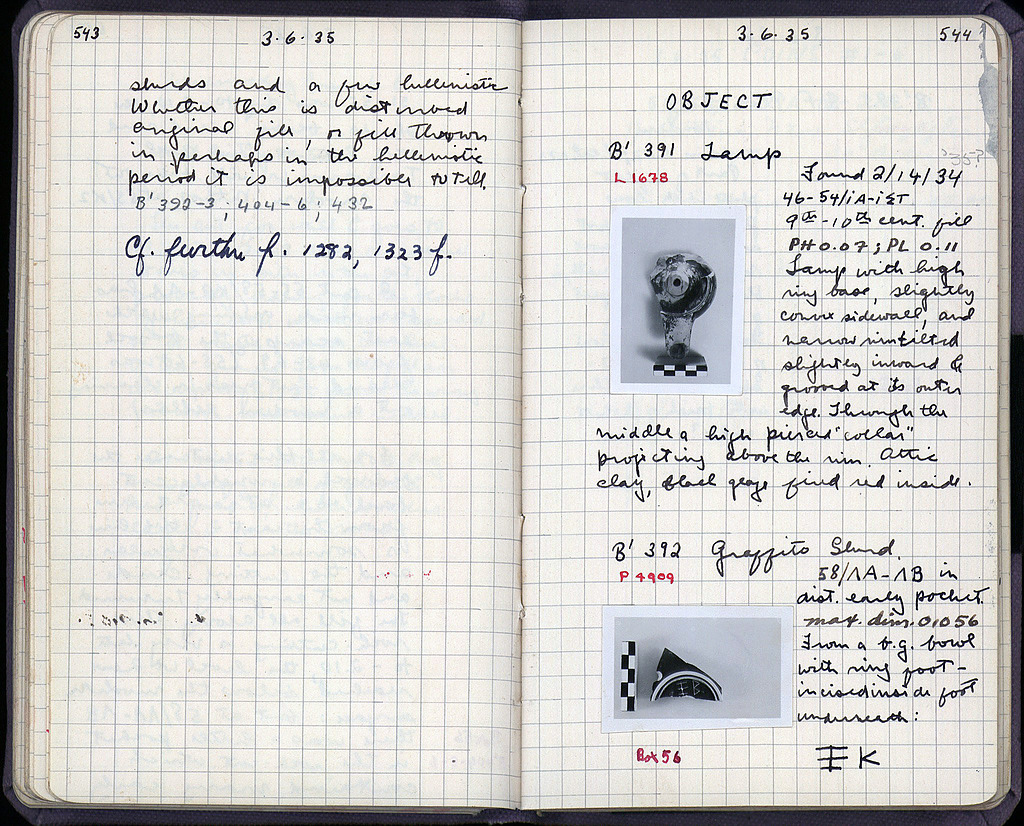 543
3·6·35
sherds and a few hellenistic
Whether this is disturbed
original fill, or fill thrown
in perhaps in the hellenistic
period it is impossible to tell.
B' 392-3; 404-6; 432
Cf. further p. 1282, 1323 f.
3·6·35
544
OBJECT
B' 391 Lamp
L 1678
'35?
Found 2/14/34
46-54/ΙΑ-ΙΣΤ
9th-10th cent. fill
PH 0.07; PL 0.11
Lamp with high
ring base, slightly
convex sidewall, and
narrow rim tilted
slightly inward &
grooved at its outer
edge. Through the
middle a high pierced "collar"
projecting above the rim. Attic
clay, black glaze fired red inside.
B' 392 Graffito Sherd.
P 4909
58/ΛΑ-ΛΒ in
dist. early pocket.
max. dim. 0.056
From a b.g. bowl
with ring foot -
incised inside foot
underneath:
Box 56
ΞK